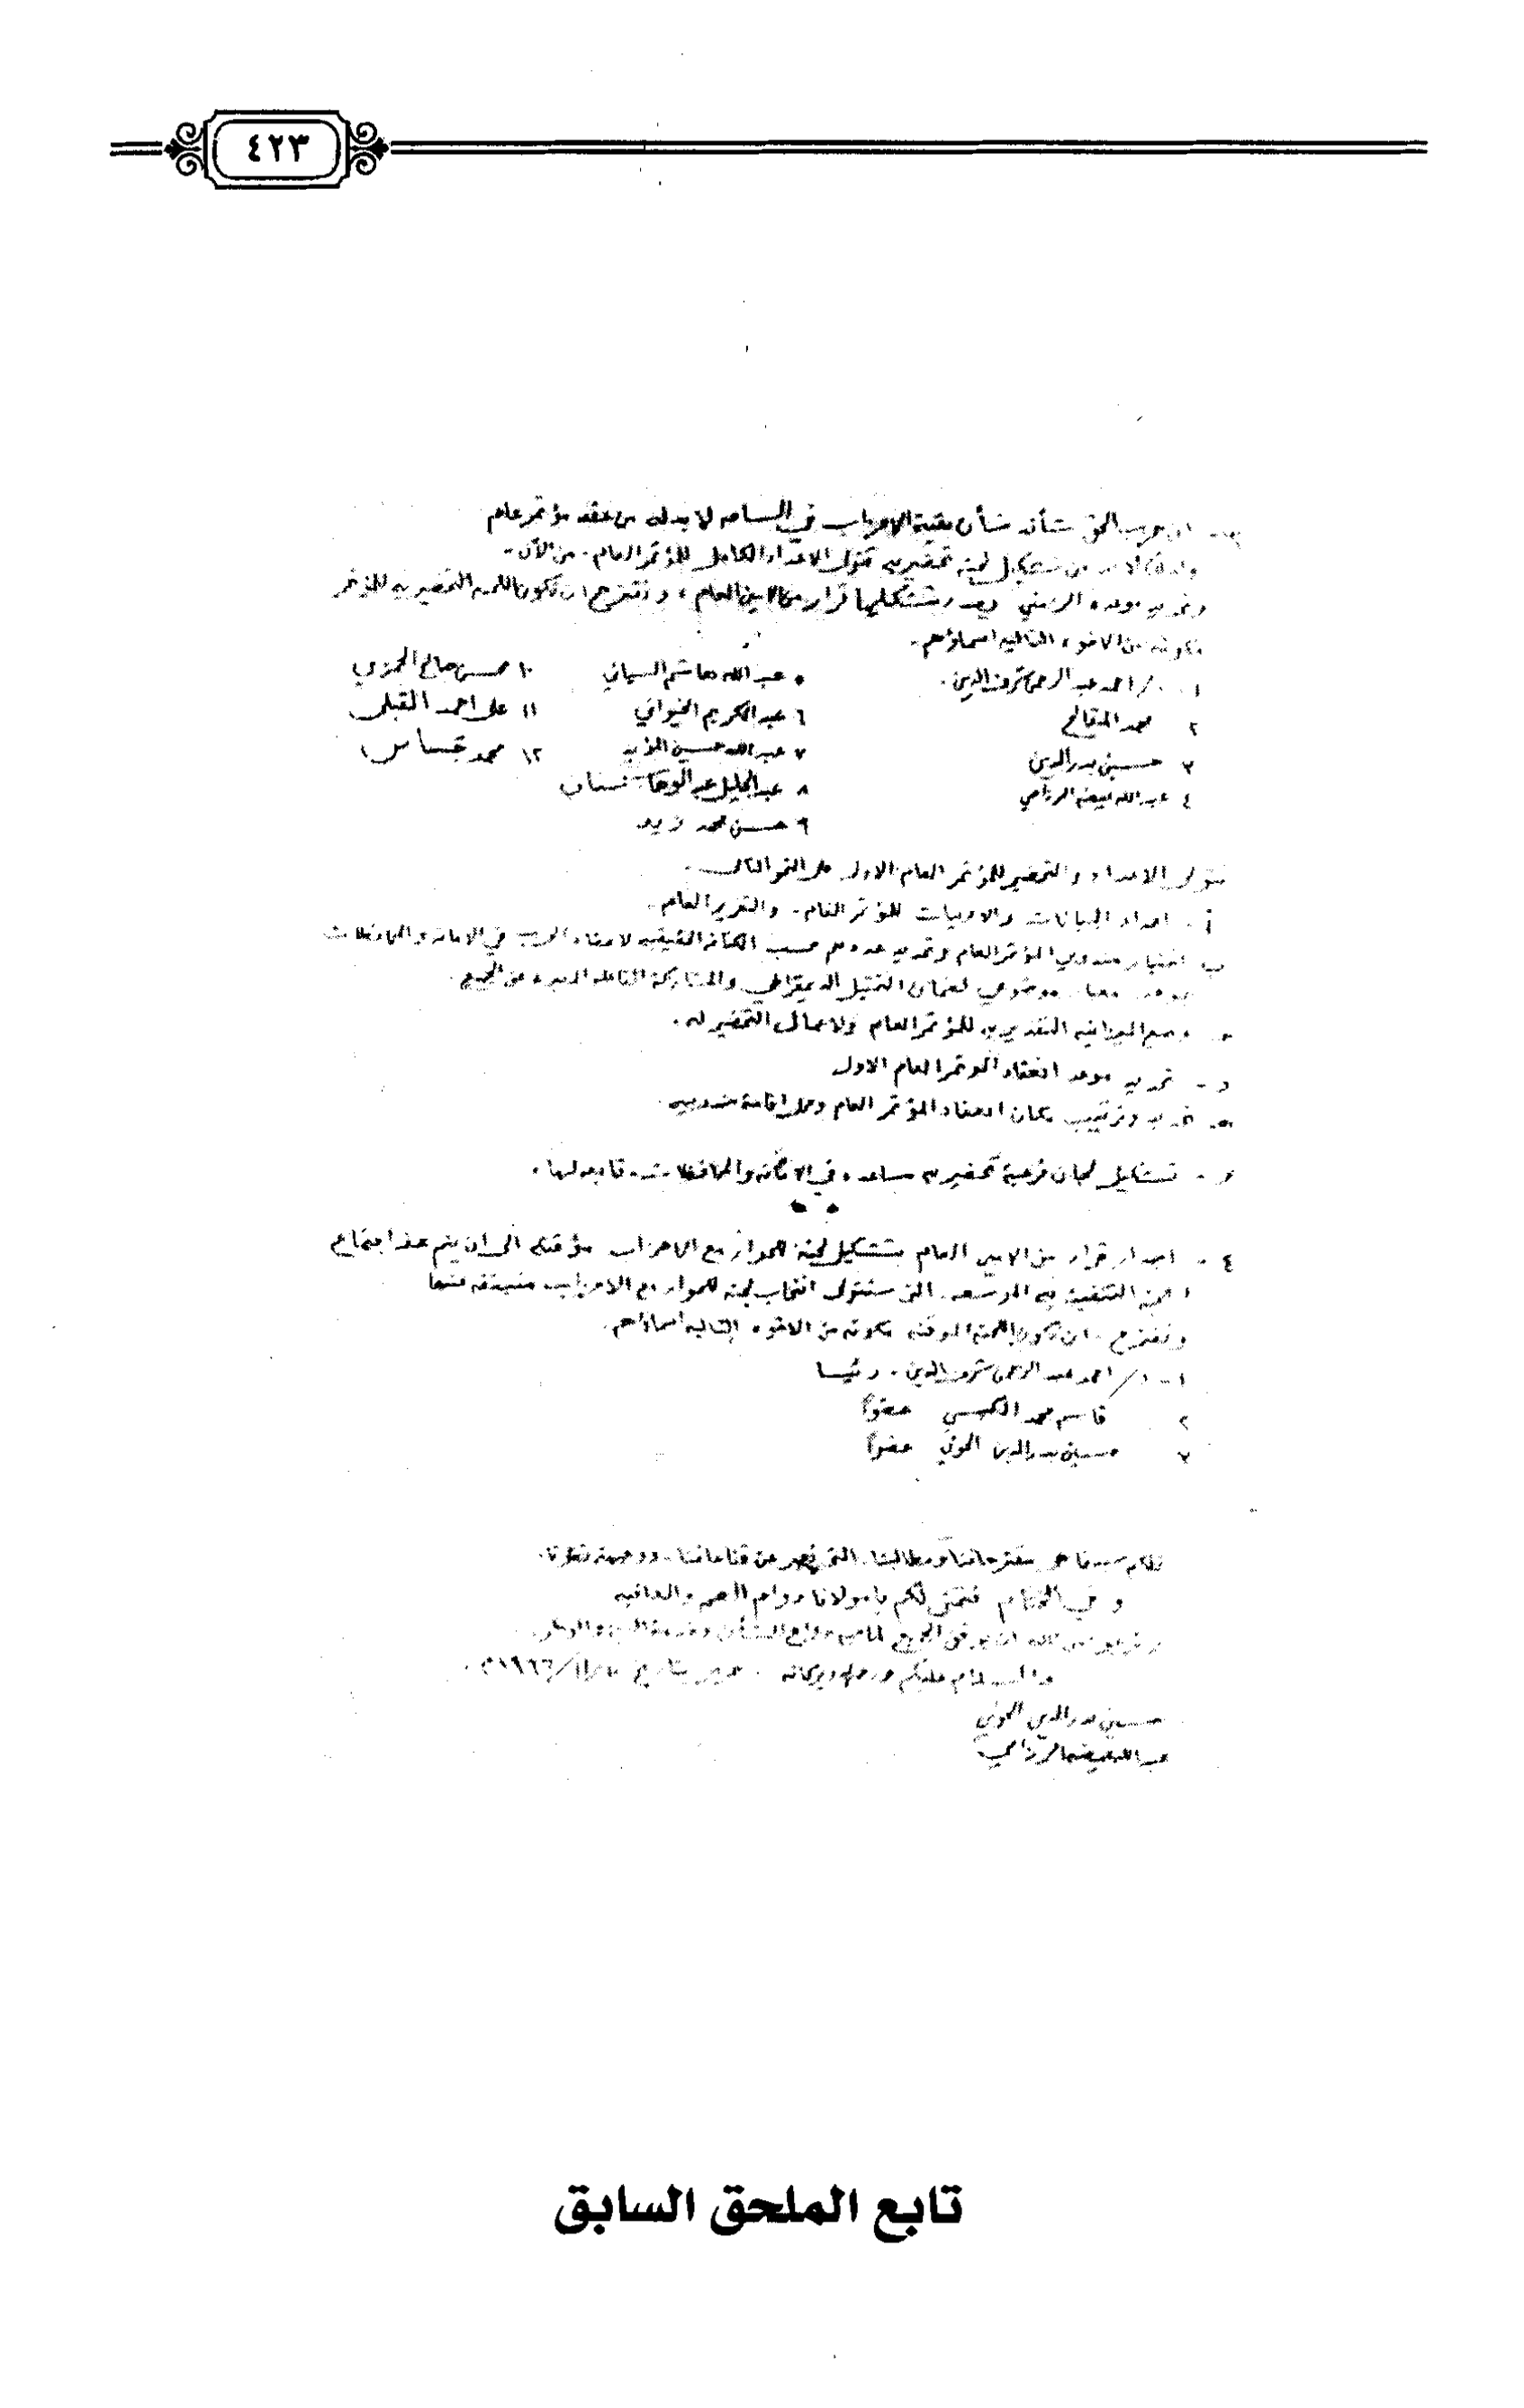 ٤٢٣
ان حزب الحق شأنه شأن بقية الاحزاب في الساحه لا بد له من عقد مؤتمر عام
ولذلك لا بد من تشكيل لجنه تحضيريه تتولى الاعداد الكامل للمؤتمر العام . من الآن .
وتحديد موعده الزمني ويصدر بتشكيلها قرار من الامين العام ، ونقترح ان تكون اللجنه التحضيريه للمؤتمر
مكونه من الاخوه التاليه اسماؤهم .
١ . د / احمد عبد الرحمن شرف الدين .
٢ محمد المقالح
٣ حسين بدر الدين
٤ عبدالله عيضه الرزامي
٥ عبدالله هاشم السياني
٦ عبدالكريم الخيواني
٧ عبدالله حسين المؤيد
٨ عبدالجليل عبدالوهاب
٩ حسن محمد زيد
١٠ محسن صالح الحمزي
١١ على احمد
١٢ محمد
تتولى الاعداد والتحضير للمؤتمر العام الاول على النحو التالي .
أ - اعداد البيانات والادبيات للمؤتمر العام . والتقرير العام .
ب اختيار مندوبي المؤتمر العام وتحديد عددهم حسب الكثافه لاعضاء الحزب في الامانه والمحافظات
موضوعي لضمان التمثيل الديمقراطي والمشاركة من الجميع .
وضع الميزانيه التقديريه للمؤتمر العام ولاعمال التحضير له .
د - تحديد موعد انعقاد المؤتمر العام الاول
هـ وترتيب مكان انعقاد المؤتمر العام ومحل اقامة مندوبيه .
و - تشكيل لجان فرعية تحضيريه مساعده في الامانه والمحافظات . تابعه لها .
٤ - اصدار قرار من الامين العام بتشكيل لجنة للحوار مع الاحزاب مؤقته الى ان يتم عقد اجتماع
التنفيذيه الموسعه . التي ستتولى انتخاب لجنه للحوار مع الاحزاب منبثقه عنها
ونقترح . ان تكون اللجنة المؤقته مكونه من الاخوه التاليه اسماؤهم .
١ - د / احمد عبد الرحمن شرف الدين . رئيسا
٢ قاسم محمد الكبسي عضوا
٣ حسين بدر الدين الحوثي عضوا
مقترحاتنا ومطالبنا . التي تعبر عن قناعاتنا . ووجهة نظرنا .
وفي الختام نتمنى لكم يا مولانا دوام والعافيه
الله ان يوفق الجميع
والسلام عليكم ورحمة وبركاته . حرر بتاريخ
حسين بدر الدين الحوثي
عبدالله عيضه الرزامي
تابع الملحق السابق